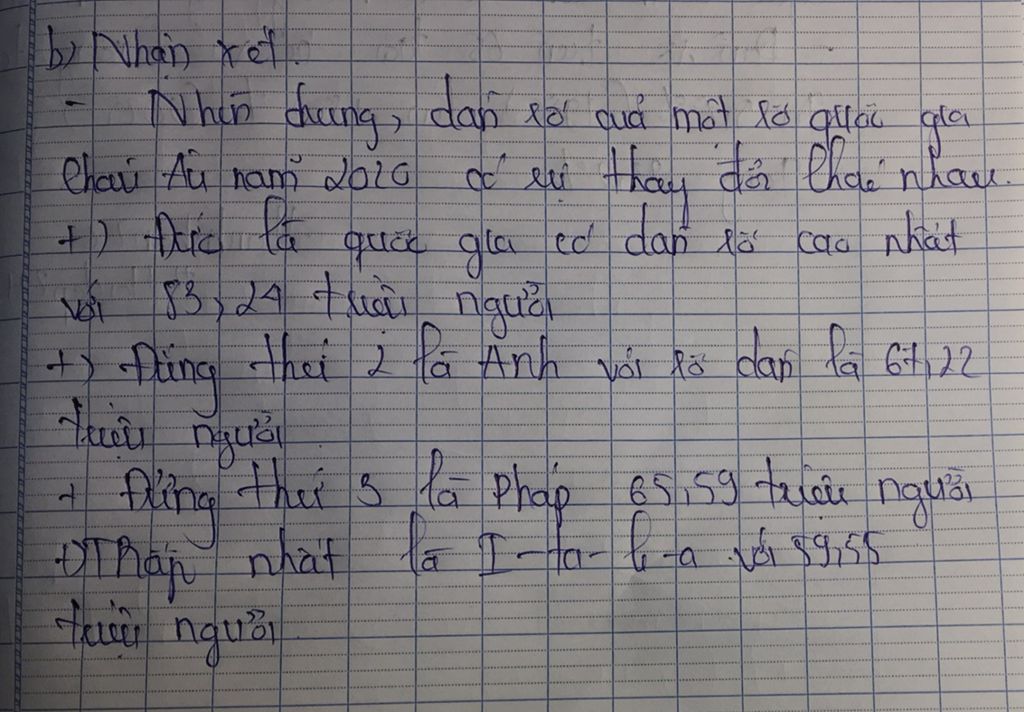 b) Nhận xét.
- Nhìn chung, dân số quả một số quốc gia
Châu Âu năm 2020 có sự thay đổi khác nhau.
+) Đức là quốc gia có dân số cao nhất
với 83,24 triệu người
+) Đứng thứ 2 là Anh với số dân là 67,22
triệu người.
+ Đứng thứ 3 là Pháp 65,59 triệu người
+) Thấp nhất là I-ta-li-a với 59,55
triệu người